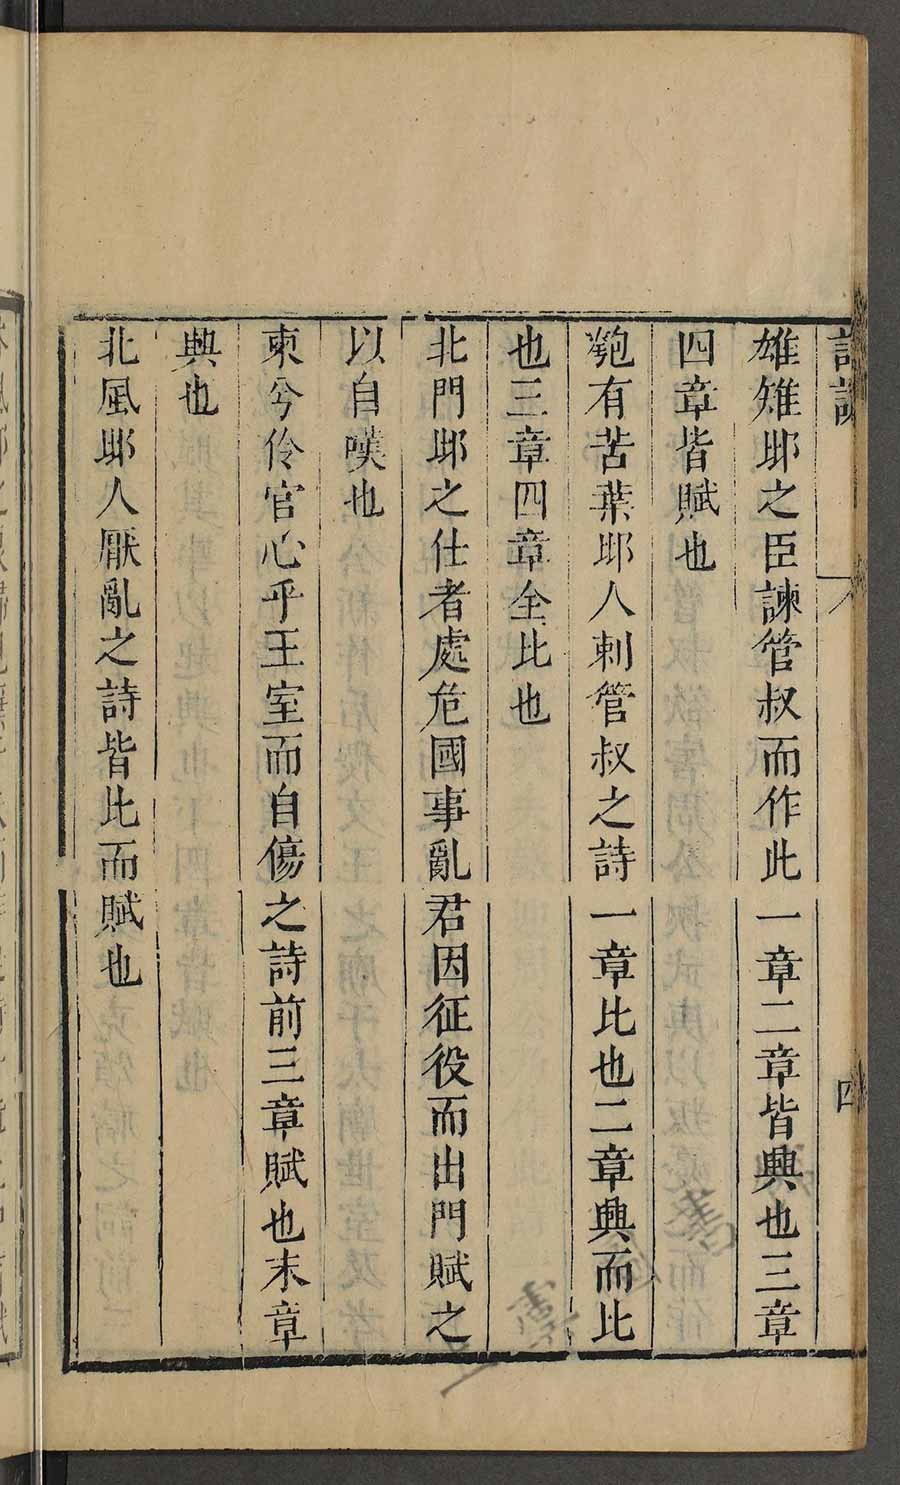 詩說 四
雄雉邶之臣諫管叔而作此一章二章皆興也三章
四章皆賦也
匏有苦葉邶人刺管叔之詩一章比也二章興而比
也三章四章全比也
北門邶之仕者處危國事亂君因征役而出門賦之
以自嘆也
柬兮伶官心乎王室而自傷之詩前三章賦也末章
興也
北風邶人厭亂之詩皆比而賦也